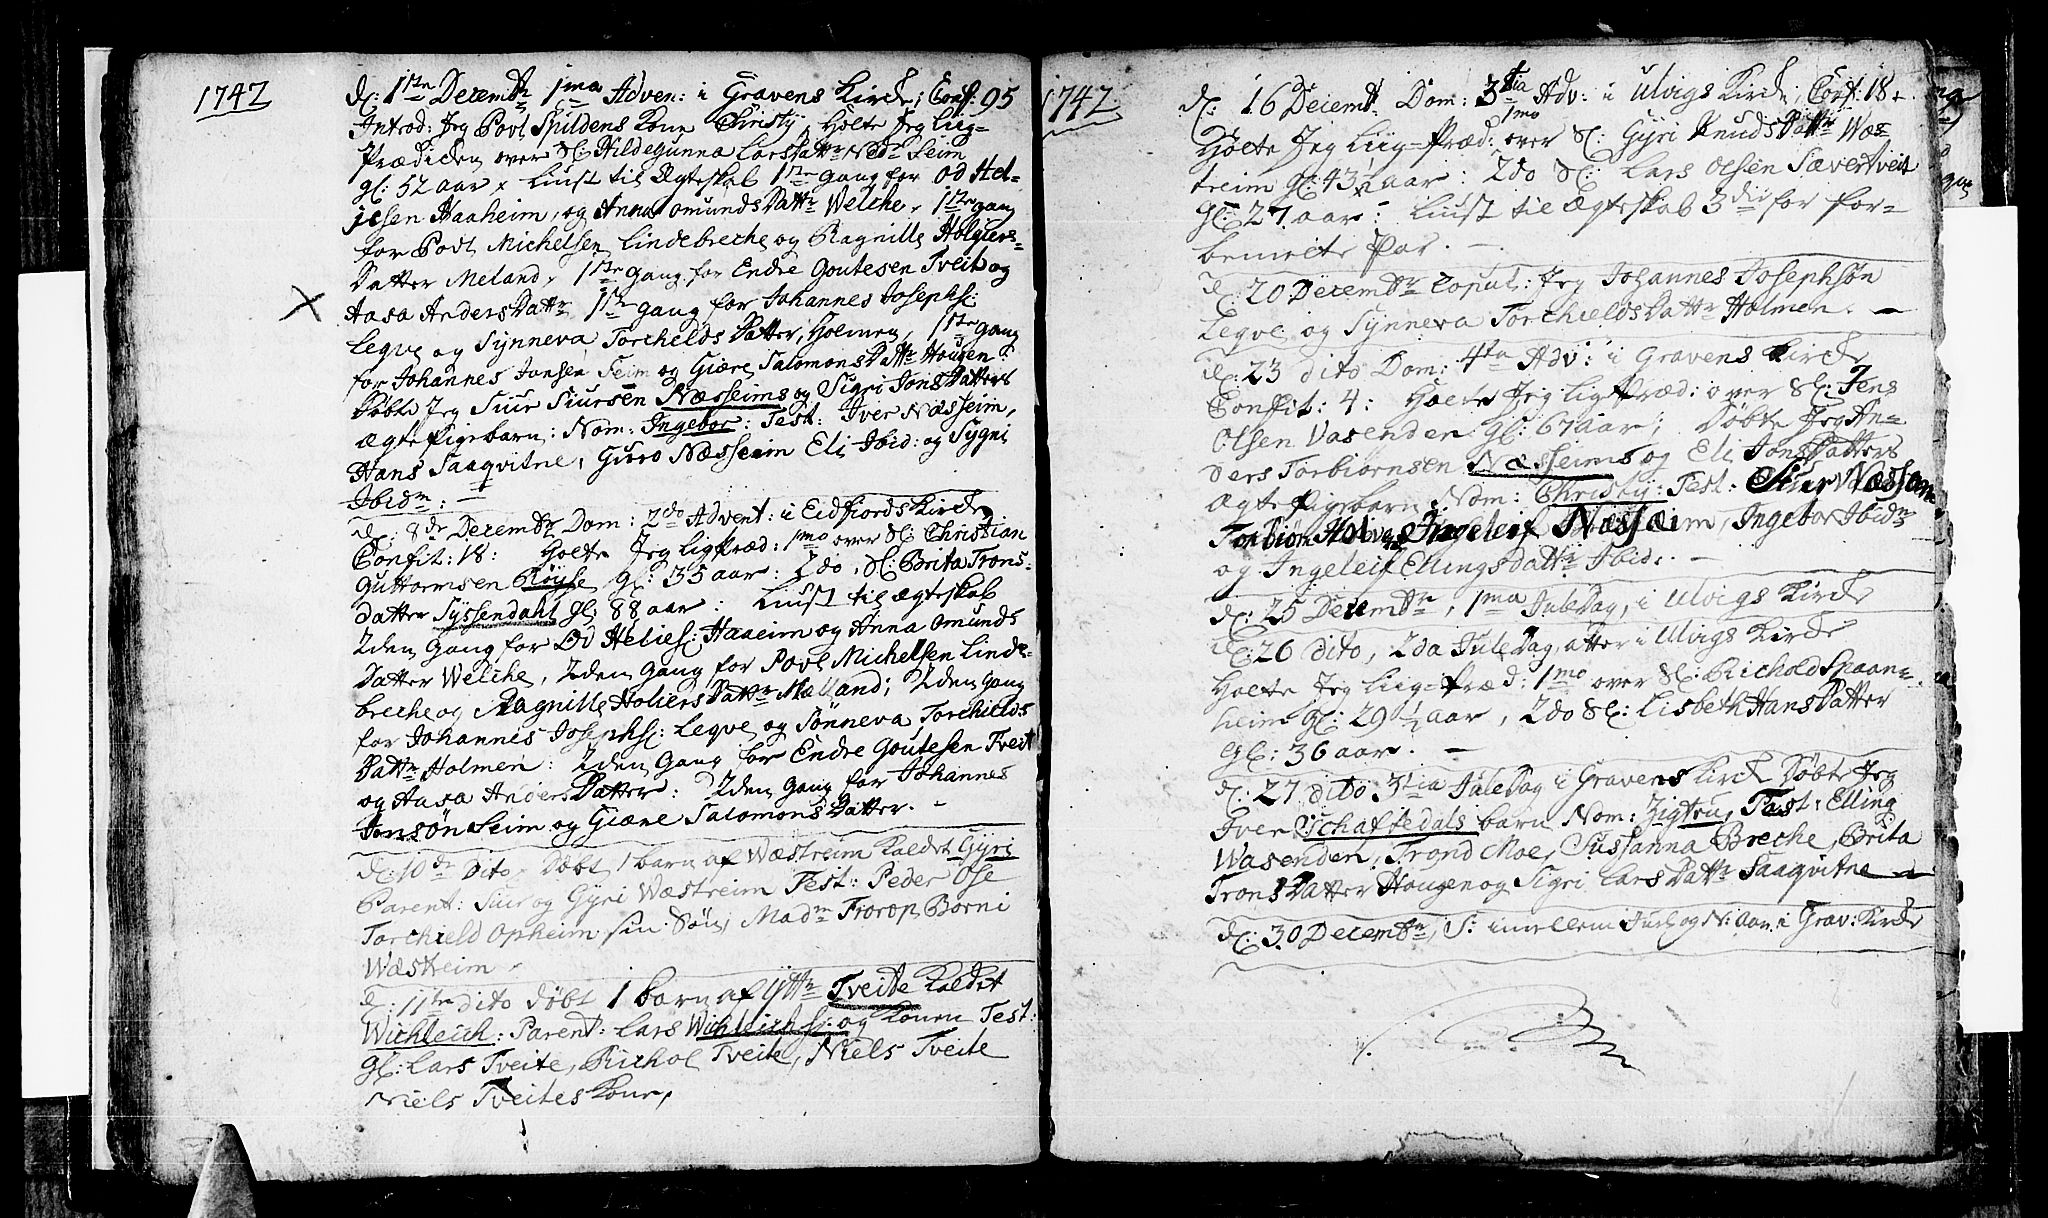 1747
d: 1ste Decembr 1ma Adven: i Gravens Kirche; Conf: 95
Introd: Jeg Povl Spildens Kone Christj, Holte Jeg liig=
Prædichen over Sl: Hildegunna LarsDattr Nedr Seim
gl: 52 aar x Liust til Ægteskab 1ste gang for Od Hel=
jesen Haaheim, og Anna omundsDattr Welche, 1ste gang
for Povl Michelsen Lindebreche og Ragnille Holgiers=
Datter Meland, 1ste gang for Endre Goutesen Tveit og
Aasa AndersDattr 1ste gang for Johannes Josephs:
Leqve og Synneva Torchelds Datter, Holmen, 1ste gang
for Johannes Jonsen Seim og Giøre SalomonsDattr Hougen:
Døbte Jeg Siur Siursen Næsseims og Sigri JonsDatters
ægte Pigebarn: Nom: Ingebor: Test: Iver Næsseim,
Hans Saaqvitne, Guro Næsseim Eli Ibid: og Sygni
Ibidm: —
d: 8de Decembr Dom: 2do Advent: i Eidfiords Kirche
Confit: 18: Holte Jeg ligPræd: 1mo over Sl: Christian
Guttormsen Røyse gl: 35 aar: 2do, Sl: Brita Trons=
datter Syssendahl gl: 88 aar: Liust til ægteskab
2den Gang for Od Helies: Haaeim og Anna omunds
Datter Welche, 2den Gang for Povl Michelsen Linde=
breche og Ragnille HoliersDattr Mælland; 2den Gang
for Johannes Josephs: Leqve og Sønneva Torchields
Dattr Holmen: 2den Gang for Endre Goutesen Tveit
og Aasa AndersDatter: 2den Gang for Johannes
Jonsøn Seim og Giære SalomonsDatter. —
d: 10de Dito Døbt 1 barn af Wæstreim Kaldet Gyri
Parent: Siur og Gyri Wæstreim Test: Peder Ose
Torchield Opheim sin Søn, Madm Torop, Borni
Wæstreim
d: 11te dito døbt 1 barn af Yttr Tveite Kaldet
Wichleich: Parent: Lars Wichleichs: og Konen Test:
gl: Lars Tveite, Richol Tveite, Niels Tveite
Niels Tveites Kone,
1747
d: 16 Decembr Dom: 3tia Adv: i Ulvigs Kirche, Conf: 18.
Holte Jeg Liig=Præd: 1mo over Sl: Gyri KnudsDattr Wæs=
treim gl: 43½ aar: 2do Sl: Lars Olsen Sævertveit
gl: 27 aar: Liust til Ægteskab 3die for for=
bemelte Par. —
d: 20 Decembr Copul: Jeg Johannes Josephsøn
Leqve og Synneva TorchieldsDattr Holmen. —
d: 23 dito Dom: 4ta Adv: i Gravens Kirche
Confit: 4: Holte Jeg ligPræd: over Sl: Jens
Olsen Vasenden gl: 67 aar; Døbte Jeg An=
ders Torbiornsen Næsseims og Eli JonsDatters
ægte Pigebarn Nom: Christj: Test: Siur Næsseim
Torbiøn Holven Ingeleif Næsseim, Ingebor Ibidm
og Ingeleif Ellingsdattr Ibid: —
d: 25 Decembr, 1ma JuleDag, i Ulvigs Kirche
d: 26 dito, 2da JuleDag, atter i Ulvigs Kirche
Holte Jeg Liig=Præd: 1mo over Sl: Richold Spaan=
heim gl: 29½ aar, 2do Sl: Lisbeth HansDatter
gl: 36 aar. —
d: 27 dito 3tia JuleDag i Gravens Kirch Døbte Jeg
Iver Schaftedals barn Nom: Zigtru, Test: Elling
Wasenden, Trond Moe, Sussanna Breche, Brita
TronsDatter Hougen og Sigri LarsDattr Saaqvitne —
d: 30 Decembr, S: imellem Juel og N: Aar i Grav: Kirche